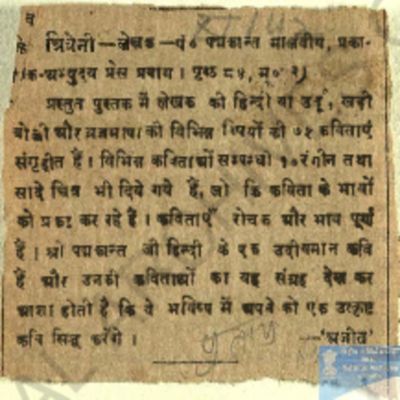 त्रिवेनी—लेखक—पं० पद्मकान्त मालवीय, प्रका-
शक-अभ्युदय प्रेस प्रयाग। पृष्ठ ८५, मू० २)
प्रस्तुत पुस्तक में लेखक की हिन्दी या उर्दू, खड़ी
बोली और ब्रजभाषा की विभिन्न विषयों की ७५ कविताएँ
संगृहीत हैं। विभिन्न कविताओं सम्बन्धी १० रंगीन तथा
सादे चित्र भी दिये गये हैं, जो कि कविता के भावों
को प्रकट कर रहे हैं। कविताएँ रोचक और भाव पूर्ण
हैं। श्री पद्मकान्त जी हिन्दी के एक उदीयमान कवि
हैं और उनकी कविताओं का यह संग्रह देख कर
आशा होती है कि वे भविष्य में अपने को एक उत्कृष्ट
कवि सिद्ध करेंगे।
—'अजीत'